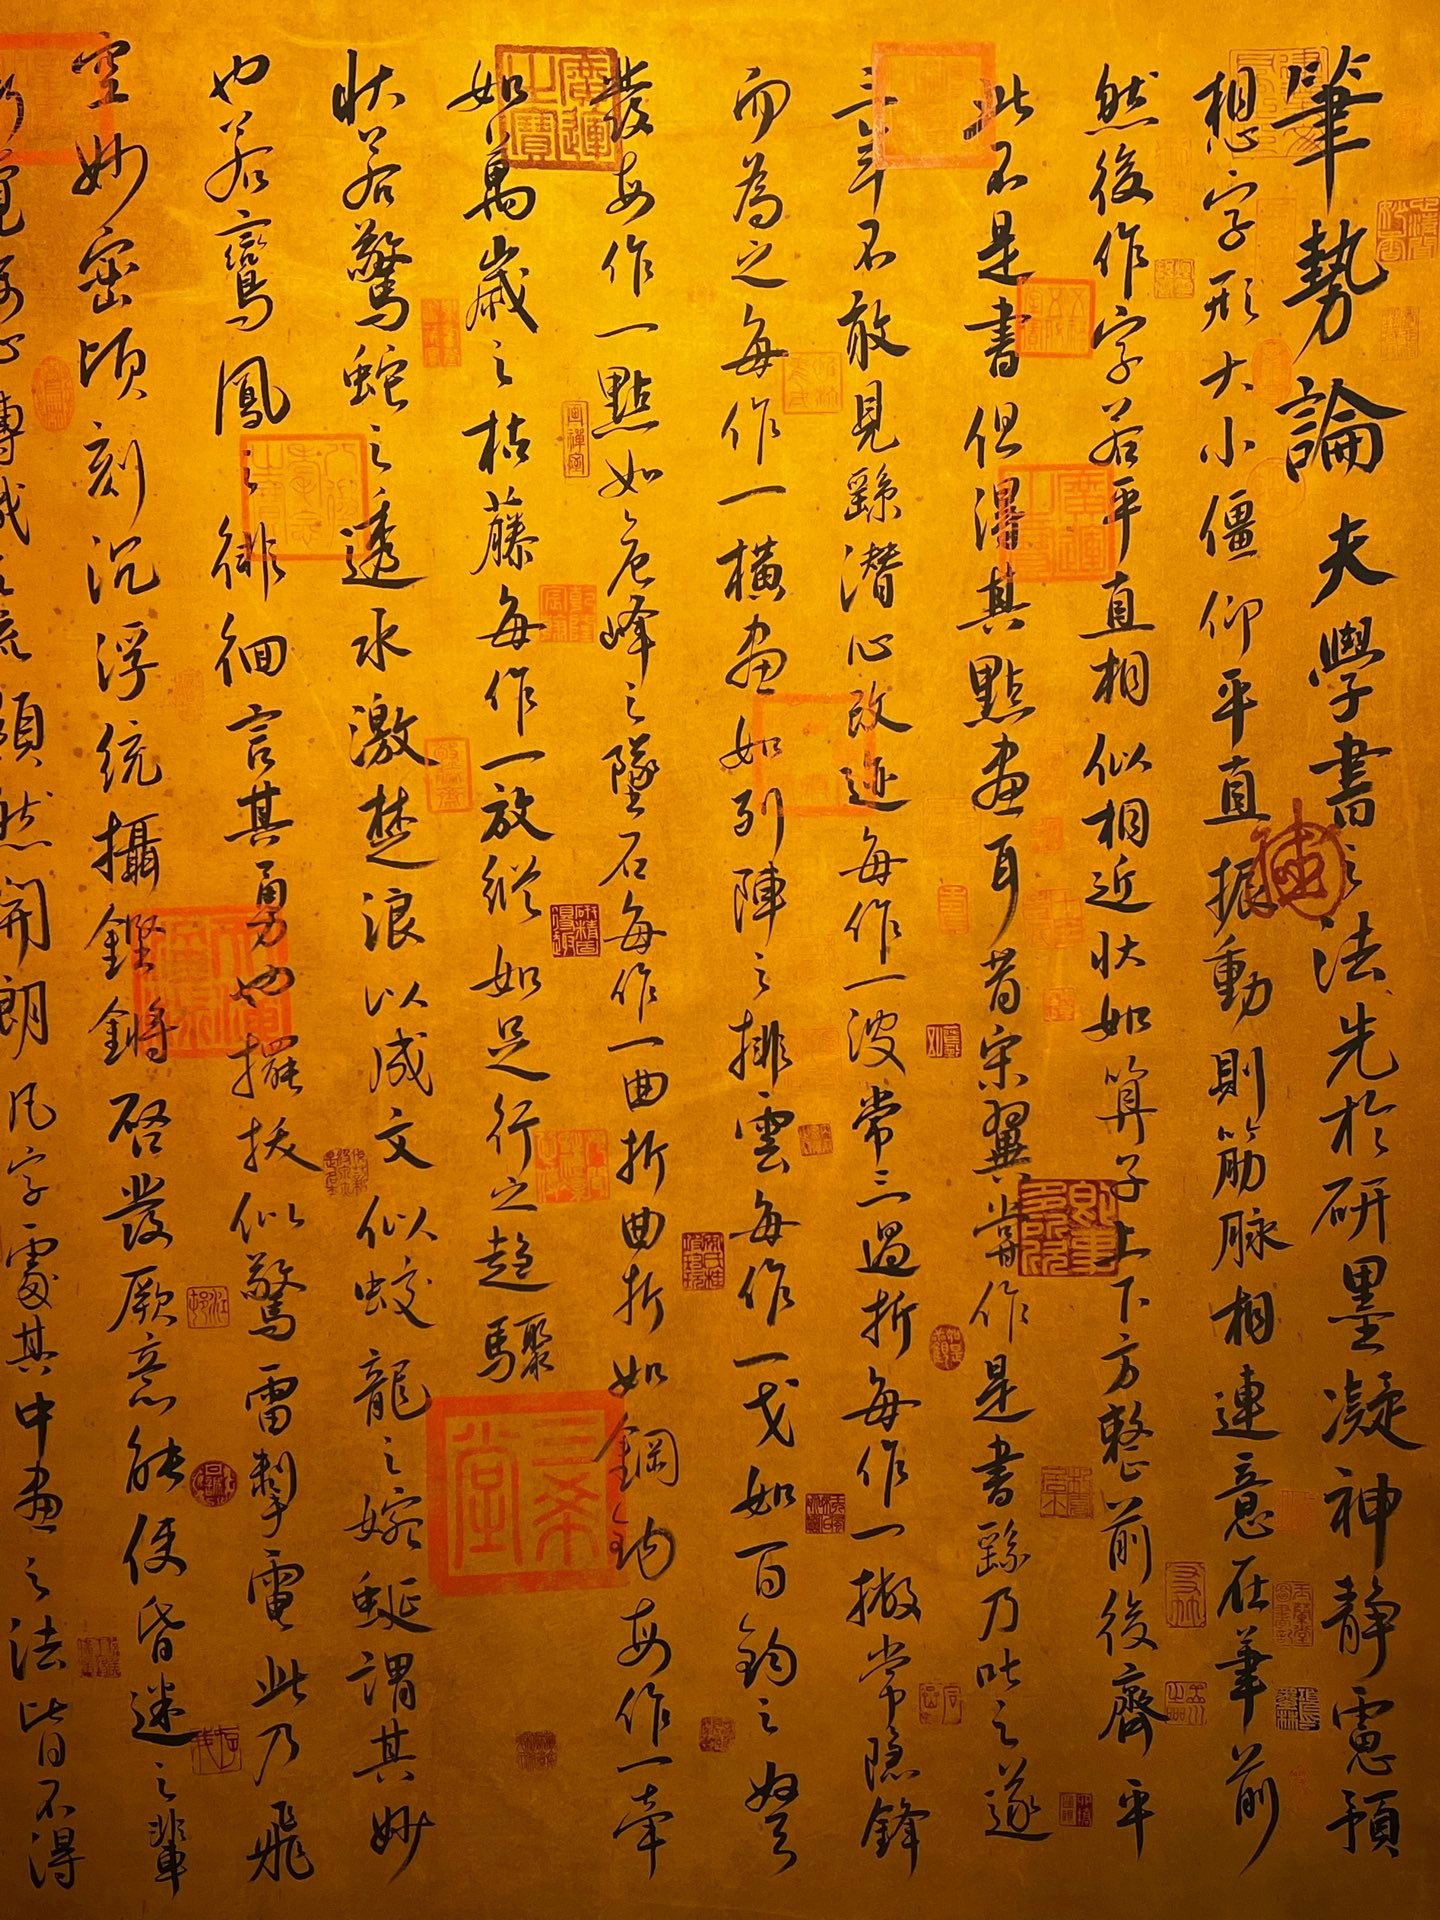 筆勢論 夫學書之法先於研墨凝神靜慮預
想字形大小偃仰平直振動則筋脉相連意在筆前
然後作字若平直相似相近狀如算子上下方整前後齊平
此不是書但得其點畫耳昔宋翼嘗作是書繇乃叱之遂
三年不敢見繇潛心改迹每作一波常三過折每作一撇常隱鋒
而為之每作一橫畫如列陣之排雲每作一戈如百鈞之弩
發每作一點如危峰之墜石每作一曲折曲折如鋼鉤每作一牽
如萬歲之枯藤每作一放縱如足行之趨驟
狀若驚蛇之透水激楚浪以成文似蛟龍之蜿蜒謂其妙
也若鸞鳳之徘徊言其勇也擺撥似驚雷掣電此乃飛
空妙密頃刻沉浮統攝鏗鏘啓發厥意能使昏迷之輩
漸覺 心博識 流顯然開朗凡字處其中畫之法皆不得
三希堂
畫禪室